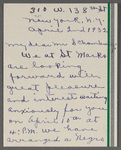 310 W. 138th St
New York, N.Y.
April 2nd 1932
My dear Mr Schomburg
We at St Marks
are looking
forward with
great pleasure
and interest waiting
anxiously for you
on April 10th at
4:P.M. we have
arranged a Negro